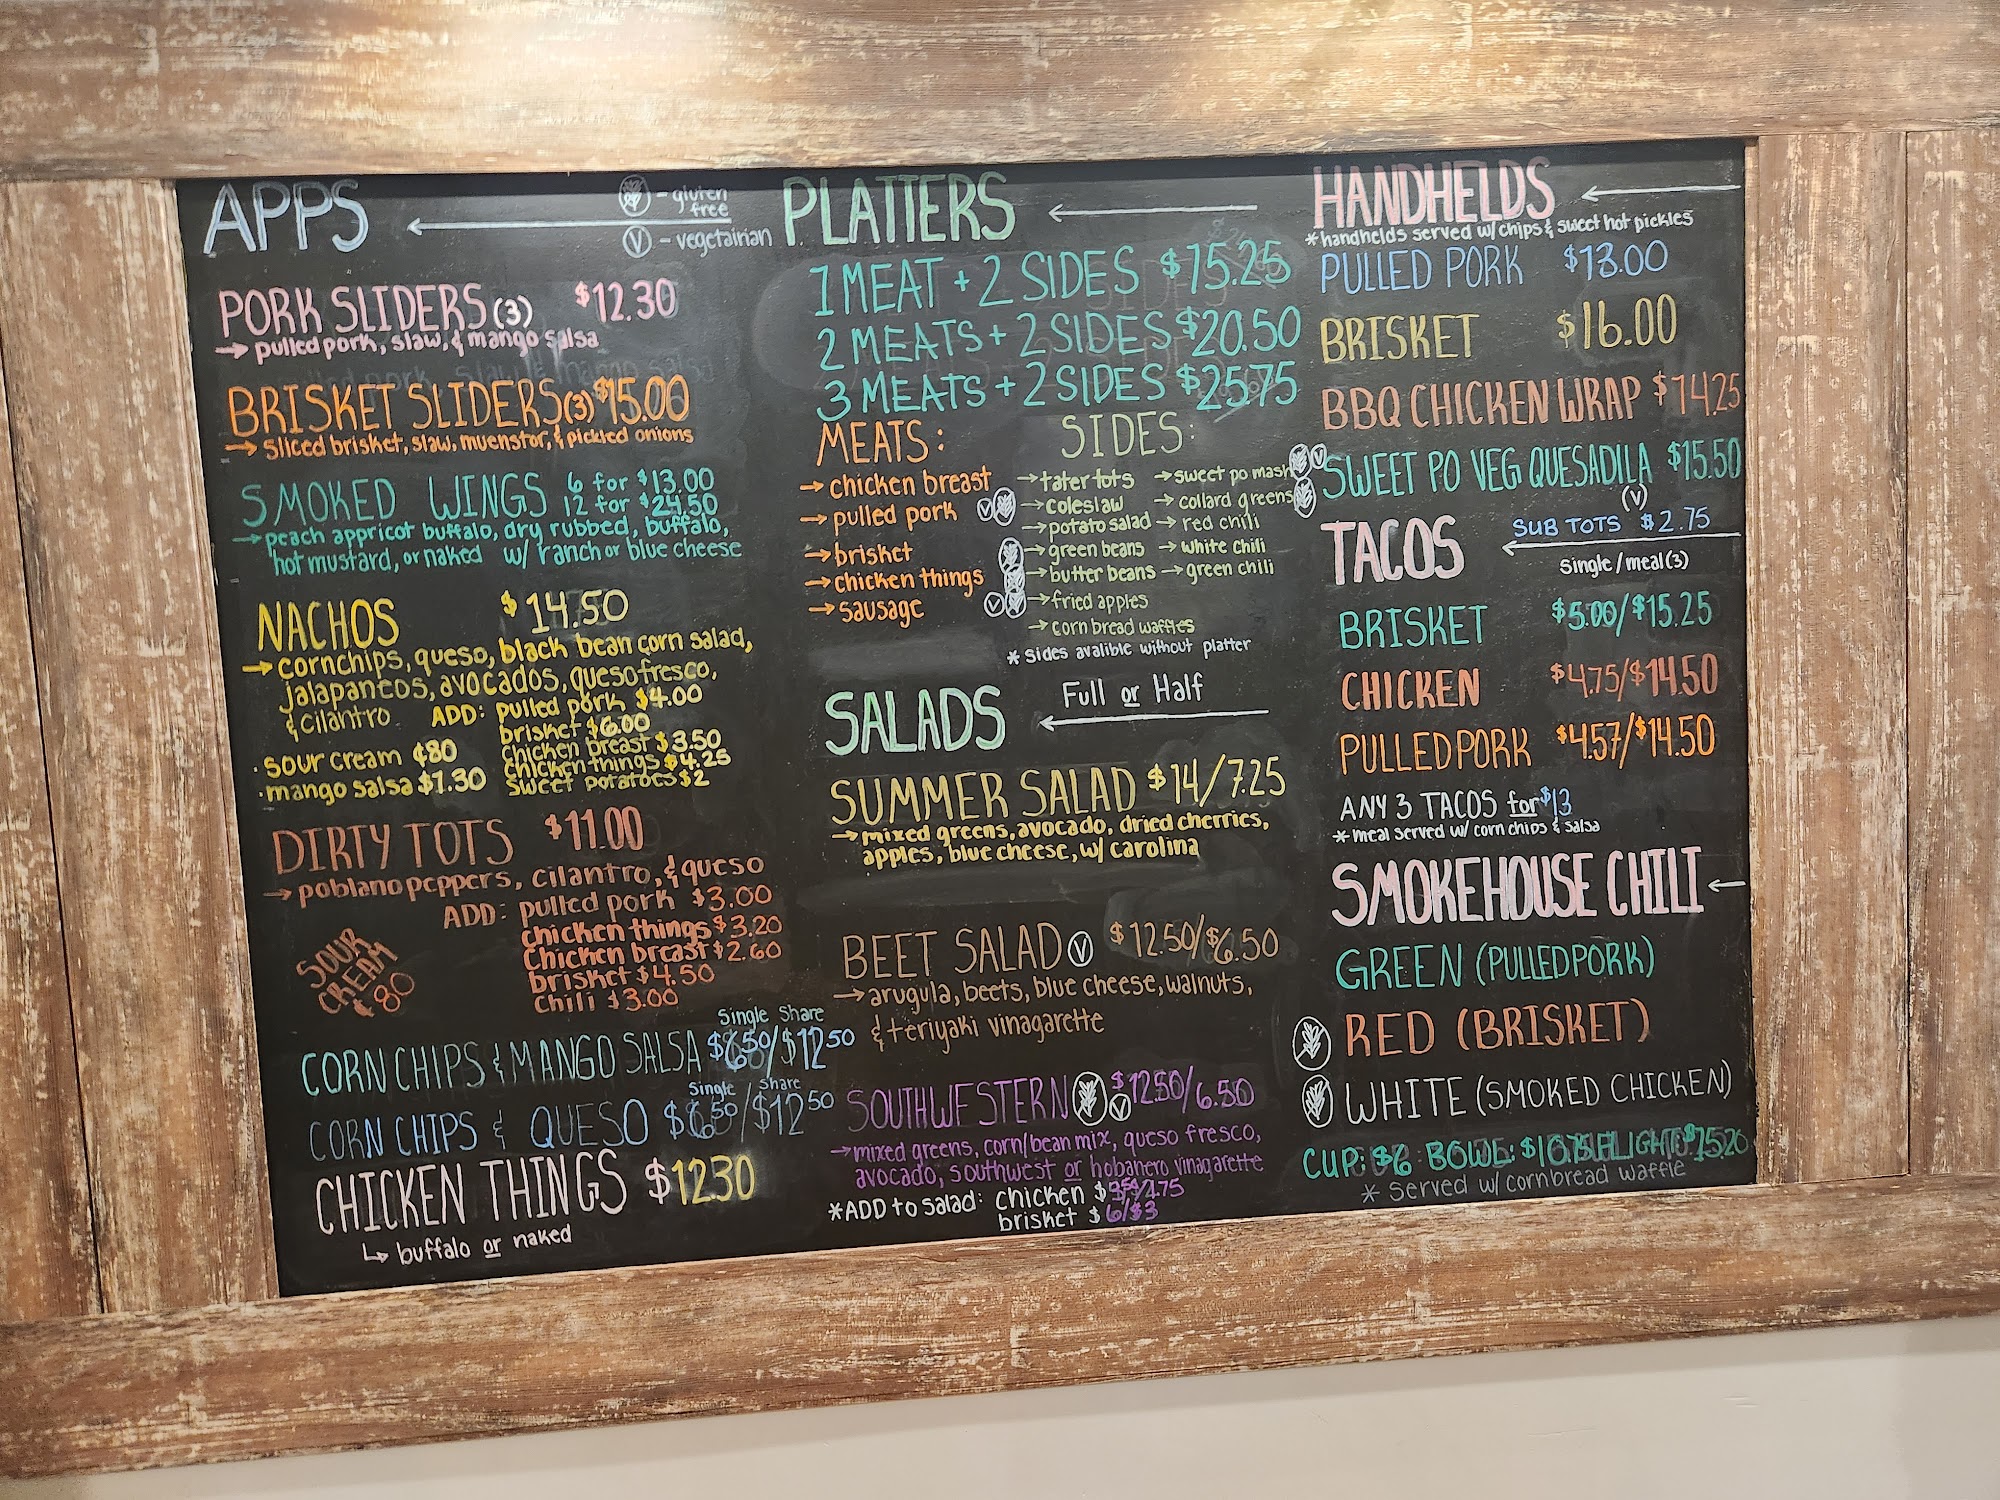 APPS
- gluten free
V - vegetairian
PORK SLIDERS (3) $12.30
→ pulled pork, slaw, & mango salsa
BRISKET SLIDERS (3) $15.00
→ sliced brisket, slaw, muenstor, & pickled onions
SMOKED WINGS 6 for $13.00
12 for $24.50
→ peach appricot buffalo, dry rubbed, buffalo,
hot mustard, or naked w/ ranch or blue cheese
NACHOS $14.50
→ cornchips, queso, black bean corn salad,
jalapaneos, avocados, queso fresco,
& cilantro. ADD: pulled pork $4.00
brisket $6.00
chicken breast $3.50
chicken things $4.25
sweet potatoes $2
· sour cream ¢80
· mango salsa $1.30
DIRTY TOTS $11.00
→ poblano peppers, cilantro, & queso
ADD: pulled pork $3.00
chicken things $3.20
chicken breast $2.60
brisket $4.50
chili $3.00
SOUR
CREAM
¢80
Single Share
CORN CHIPS & MANGO SALSA $6.50/$12.50
Single Share
CORN CHIPS & QUESO $6.50/$12.50
CHICKEN THINGS $12.30
↳ buffalo or naked
PLATTERS
1 MEAT + 2 SIDES $15.25
2 MEATS + 2 SIDES $20.50
3 MEATS + 2 SIDES $25.75
MEATS:
→ chicken breast
→ pulled pork
→ brisket
→ chicken things
→ sausage
SIDES:
→ tater tots → sweet po mash V
V → coleslaw → collard greens
→ potato salad → red chili
→ green beans → white chili
→ butter beans → green chili
V → fried apples
→ corn bread waffles
* sides avalible without platter
SALADS Full or Half
SUMMER SALAD $14/7.25
→ mixed greens, avocado, dried cherries,
apples, blue cheese, w/ carolina
BEET SALAD V $12.50/$6.50
→ arugula, beets, blue cheese, walnuts,
& teriyaki vinagarette
SOUTHWESTERN V $12.50/6.50
→ mixed greens, corn/bean mix, queso fresco,
avocado, southwest or hobanero vinagarette
*ADD to salad: chicken
brisket $6/$3
HANDHELDS
*handhelds served w/ chips & sweet hot pickles
PULLED PORK $13.00
BRISKET $16.00
BBQ CHICKEN WRAP $14.25
SWEET PO VEG QUESADILA $15.50
(V)
TACOS SUB TOTS $2.75
Single/meal (3)
BRISKET $5.00/$15.25
CHICKEN $4.75/$14.50
PULLED PORK $4.57/$14.50
ANY 3 TACOS for $13
* meal served w/ corn chips & salsa
SMOKEHOUSE CHILI
GREEN (PULLED PORK)
RED (BRISKET)
WHITE (SMOKED CHICKEN)
CUP: $6 BOWL: $10.75 FLIGHT: $15.20
* served w/ cornbread waffle